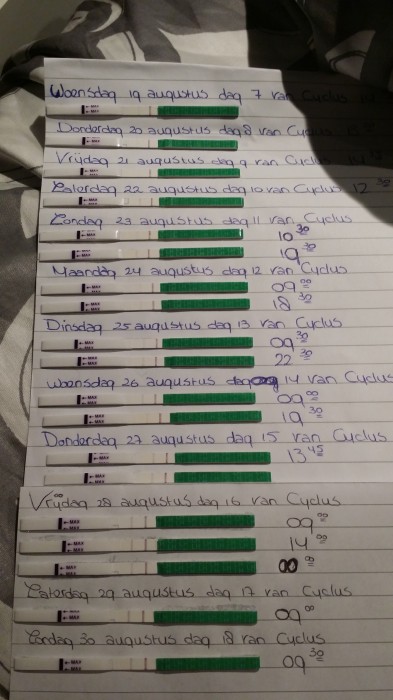 Woensdag 19 augustus dag 7 van Cyclus
Donderdag 20 augustus dag 8 van Cyclus
Vrijdag 21 augustus dag 9 van Cyclus
Zaterdag 22 augustus dag 10 van Cyclus 12 30
Zondag 23 augustus dag 11 van Cyclus
10 30
19 30
Maandag 24 augustus dag 12 van Cyclus
09 00
18 30
Dinsdag 25 augustus dag 13 van Cyclus
09 30
22 30
Woensdag 26 augustus dag 14 van Cyclus
09 00
19 30
Donderdag 27 augustus dag 15 van Cyclus
13 45
Vrijdag 28 augustus dag 16 van Cyclus
09 00
14 00
00 00
Zaterdag 29 augustus dag 17 van Cyclus
09 00
Zondag 30 augustus dag 18 van Cyclus
09 30